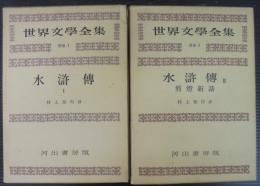 世界文學全集
水滸傳
I
村上知行譯
河出書房版
世界文學全集
水滸傳 II
剪燈新話
村上知行譯
河出書房版